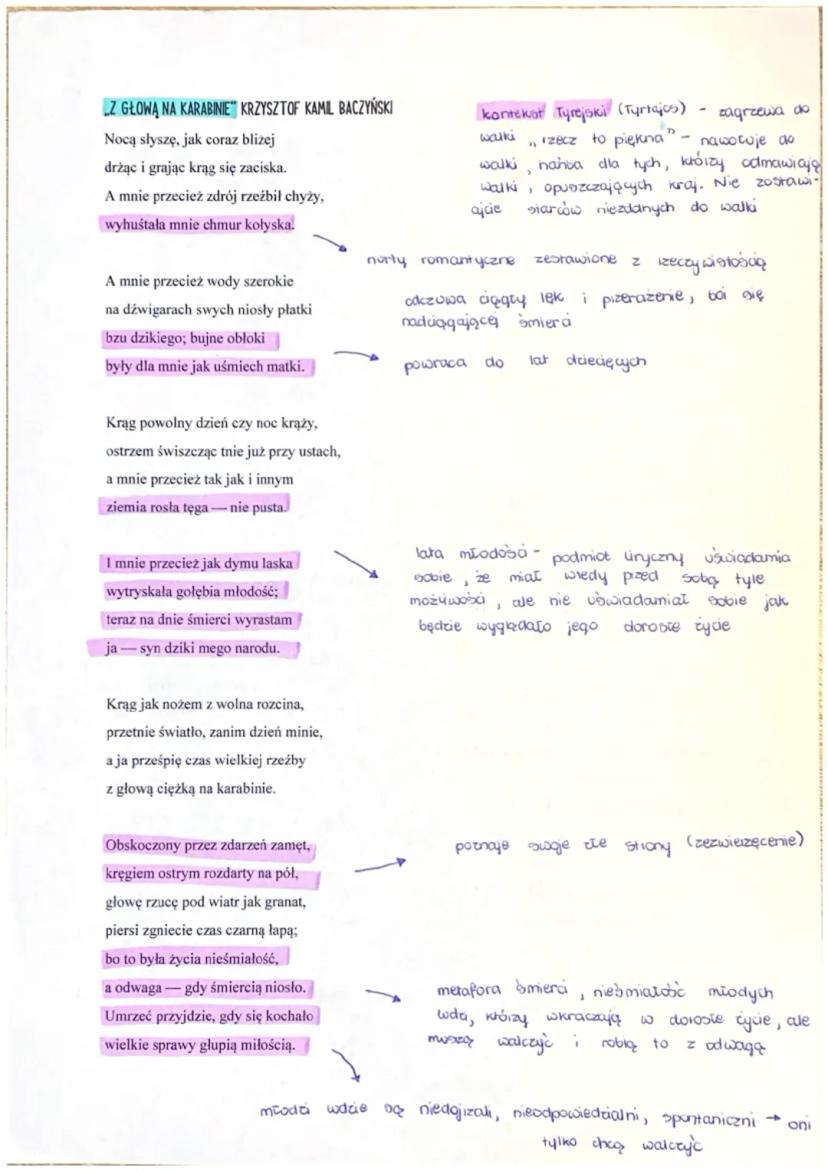 „Z GŁOWĄ NA KARABINIE" KRZYSZTOF KAMIL BACZYŃSKI
Nocą słyszę, jak coraz bliżej
drżąc i grając krąg się zaciska.
A mnie przecież zdrój rzeźbił chyży,
wyhuśtała mnie chmur kołyska.
kontekst Tyrejski (Tyrtajos) - zagrzewa do
walki „rzecz to piękna" - nawołuje do
walki, hańba dla tych, którzy odmawiają
walki, opuszczających kraj. Nie zostawi-
ajcie starców niezdolnych do walki
nurty romantyczne zestawione z rzeczywistością
A mnie przecież wody szerokie
na dźwigarach swych niosły płatki
bzu dzikiego; bujne obłoki
były dla mnie jak uśmiech matki.
odczuwa ciągły lęk i przerażenie, boi się
nadciągającej śmierci
powraca do lat dziecięcych
Krąg powolny dzień czy noc krąży,
ostrzem świszcząc tnie już przy ustach,
a mnie przecież tak jak i innym
ziemia rosła tęga — nie pusta.
I mnie przecież jak dymu laska
wytryskała gołębia młodość;
teraz na dnie śmierci wyrastam
ja — syn dziki mego narodu.
lata młodości - podmiot liryczny uświadamia
sobie, że miał wtedy przed sobą tyle
możliwości, ale nie uświadamiał sobie jak
będzie wyglądało jego dorosłe życie
Krąg jak nożem z wolna rozcina,
przetnie światło, zanim dzień minie,
a ja prześpię czas wielkiej rzeźby
z głową ciężką na karabinie.
Obskoczony przez zdarzeń zamęt,
kręgiem ostrym rozdarty na pół,
głowę rzucę pod wiatr jak granat,
piersi zgniecie czas czarną łapą;
bo to była życia nieśmiałość,
a odwaga — gdy śmiercią niosło.
Umrzeć przyjdzie, gdy się kochało
wielkie sprawy głupią miłością.
poznaje swoje złe strony (zezwierzęcenie)
metafora śmierci, nieśmiałość młodych
ludzi, którzy wkraczają w dorosłe życie, ale
muszą walczyć i robią to z odwagą
młodzi ludzie są niedojrzali, nieodpowiedzialni, spontaniczni → oni
tylko chcą walczyć